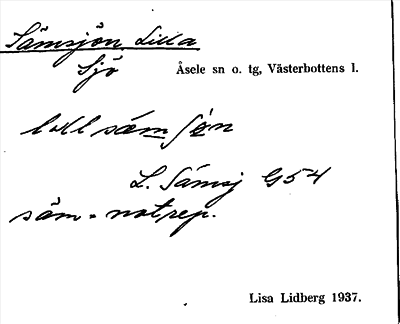 Sämsjön, Lilla
Sjö
Åsele sn o. tg, Västerbottens l.
lıll säm ʃön
L. Sämsj G54
säm = notrep.
Lisa Lidberg 1937.